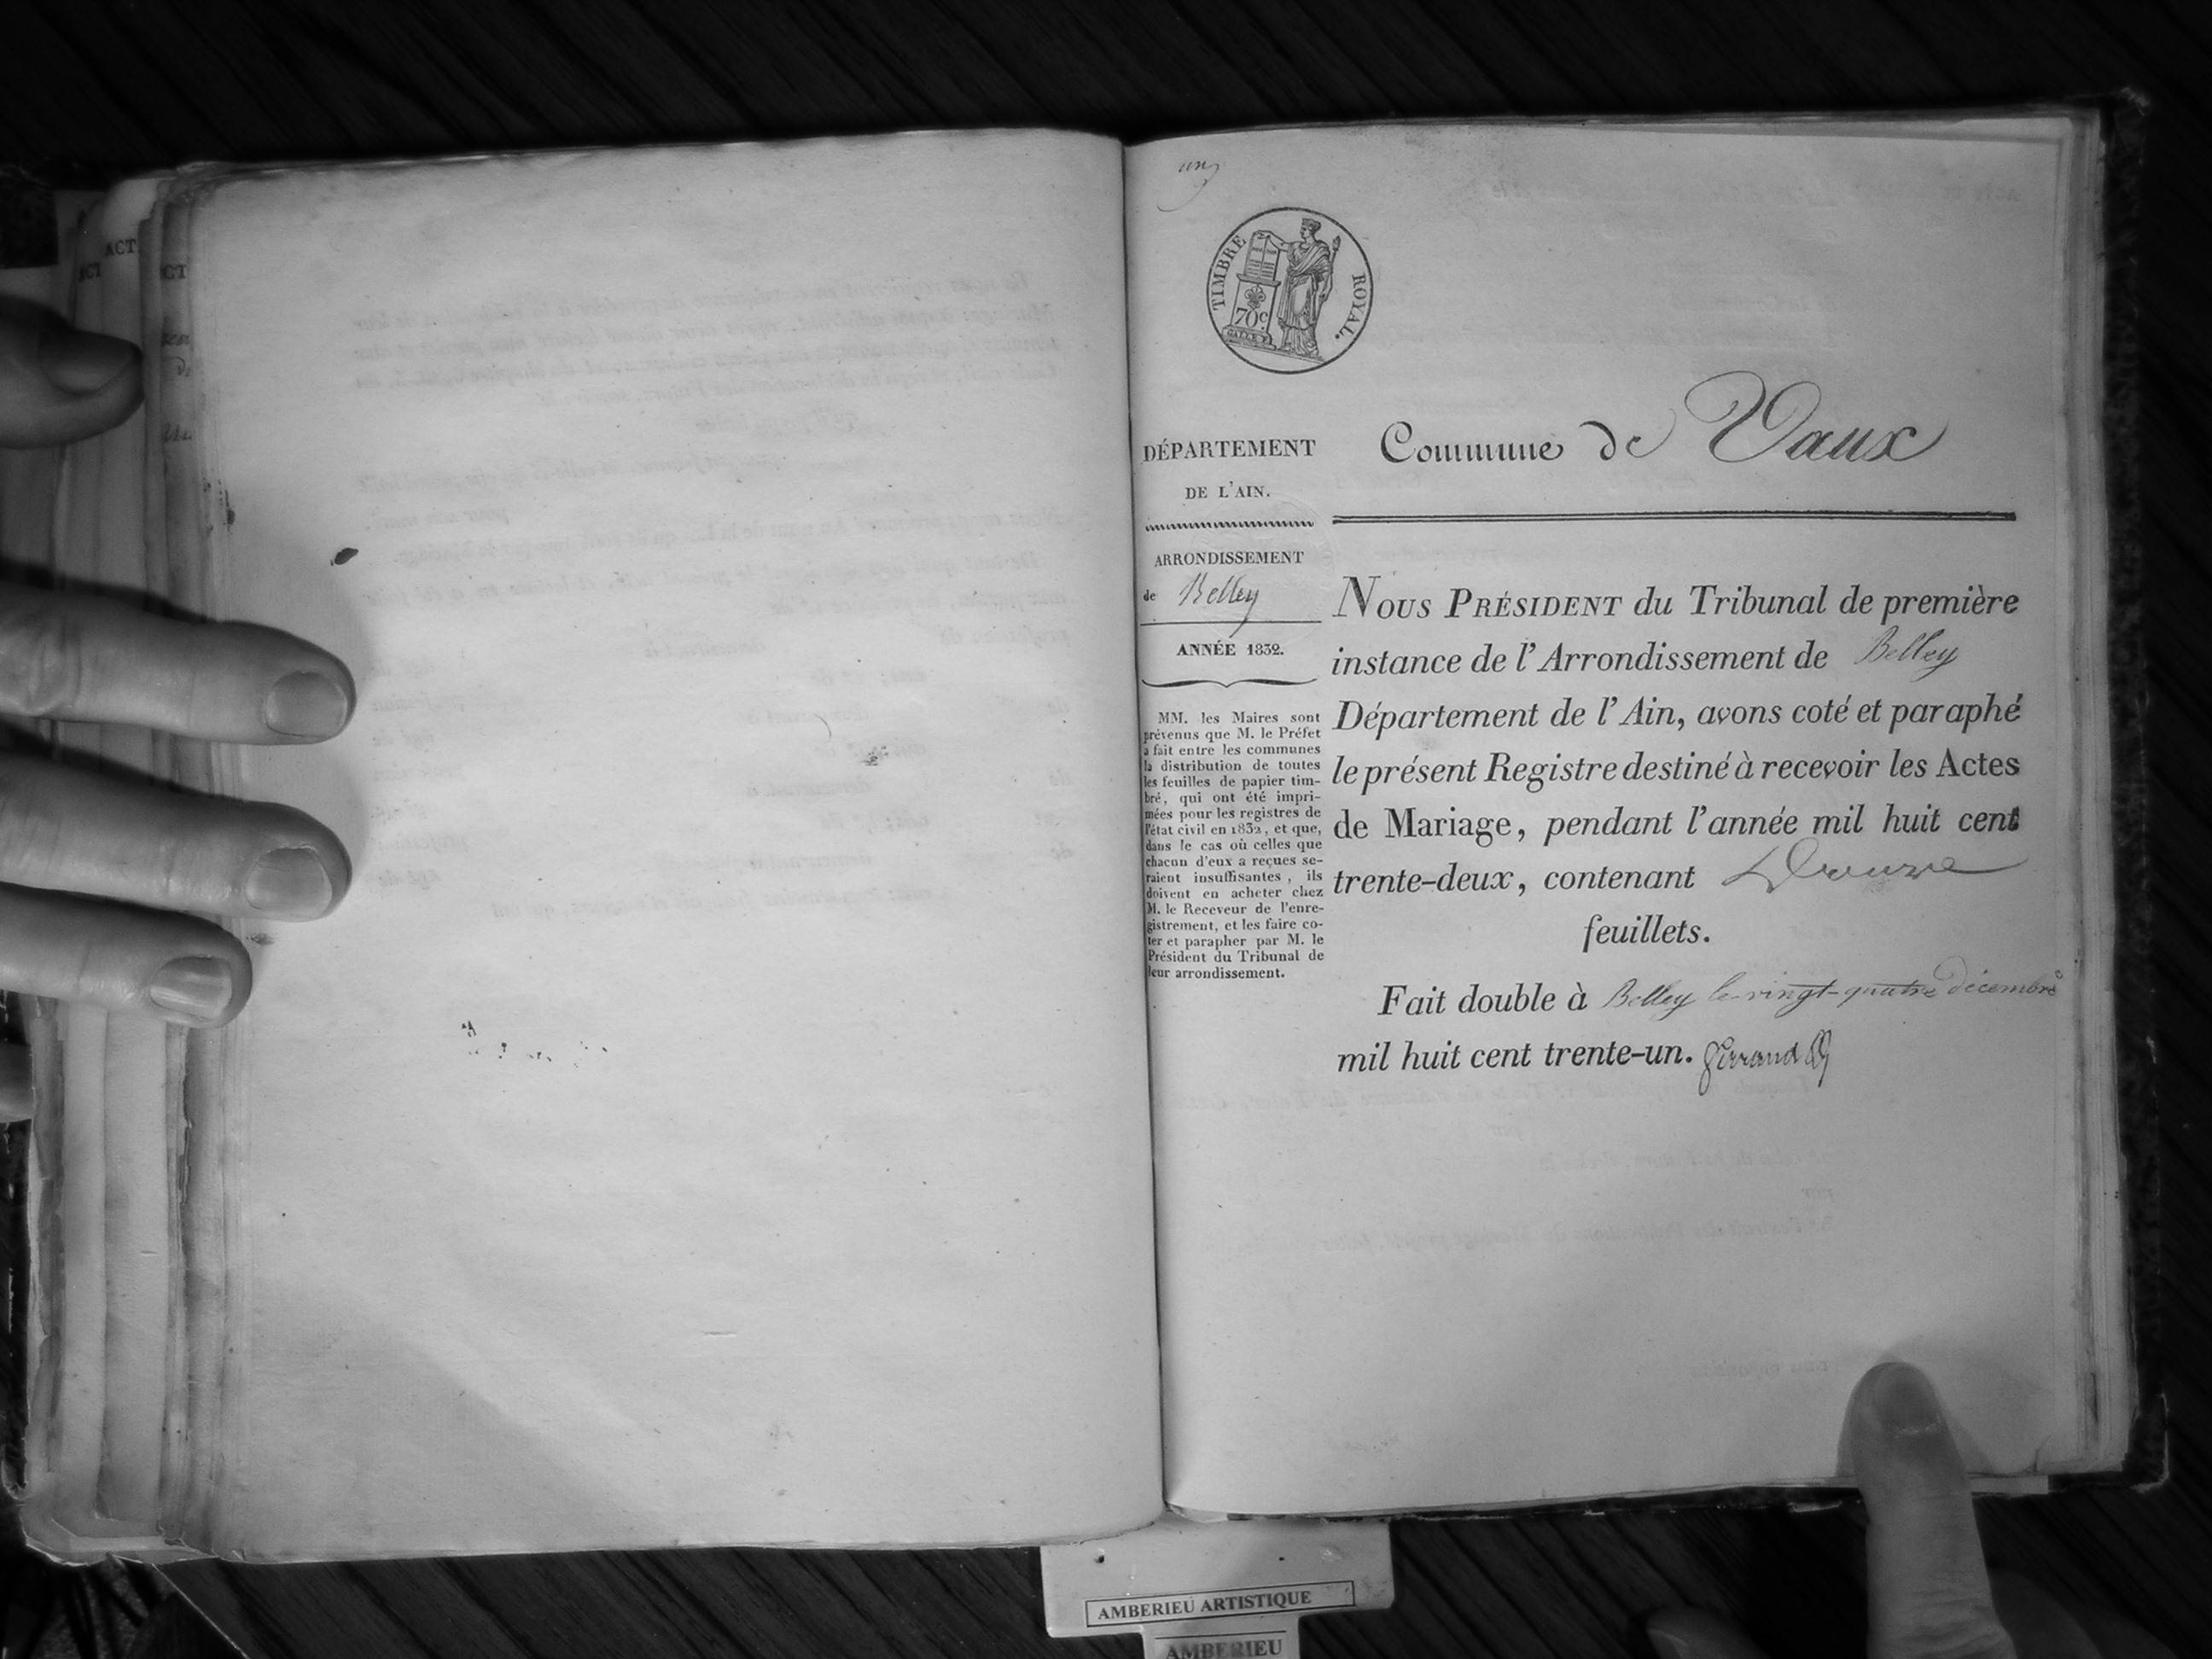 ACT
ACT
ACT
un
TIMBRE ROYAL.
70c
GALLE F.
DÉPARTEMENT
DE L'AIN.
ARRONDISSEMENT
de Belley
ANNÉE 1832.
MM. les Maires sont
prévenus que M. le Préfet
a fait entre les communes
la distribution de toutes
les feuilles de papier tim-
bré, qui ont été impri-
mées pour les registres de
l'état civil en 1832, et que,
dans le cas où celles que
chacun d'eux a reçues se-
raient insuffisantes, ils
doivent en acheter chez
M. le Receveur de l'enre-
gistrement, et les faire co-
ter et parapher par M. le
Président du Tribunal de
leur arrondissement.
Commune de Vaux
NOUS PRÉSIDENT du Tribunal de première
instance de l'Arrondissement de Belley
Département de l'Ain, avons coté et paraphé
le présent Registre destiné à recevoir les Actes
de Mariage, pendant l'année mil huit cent
trente-deux, contenant Douze
feuillets.
Fait double à Belley le vingt-quatre décembre
mil huit cent trente-un.
AMBERIEU ARTISTIQUE
AMBERIEU